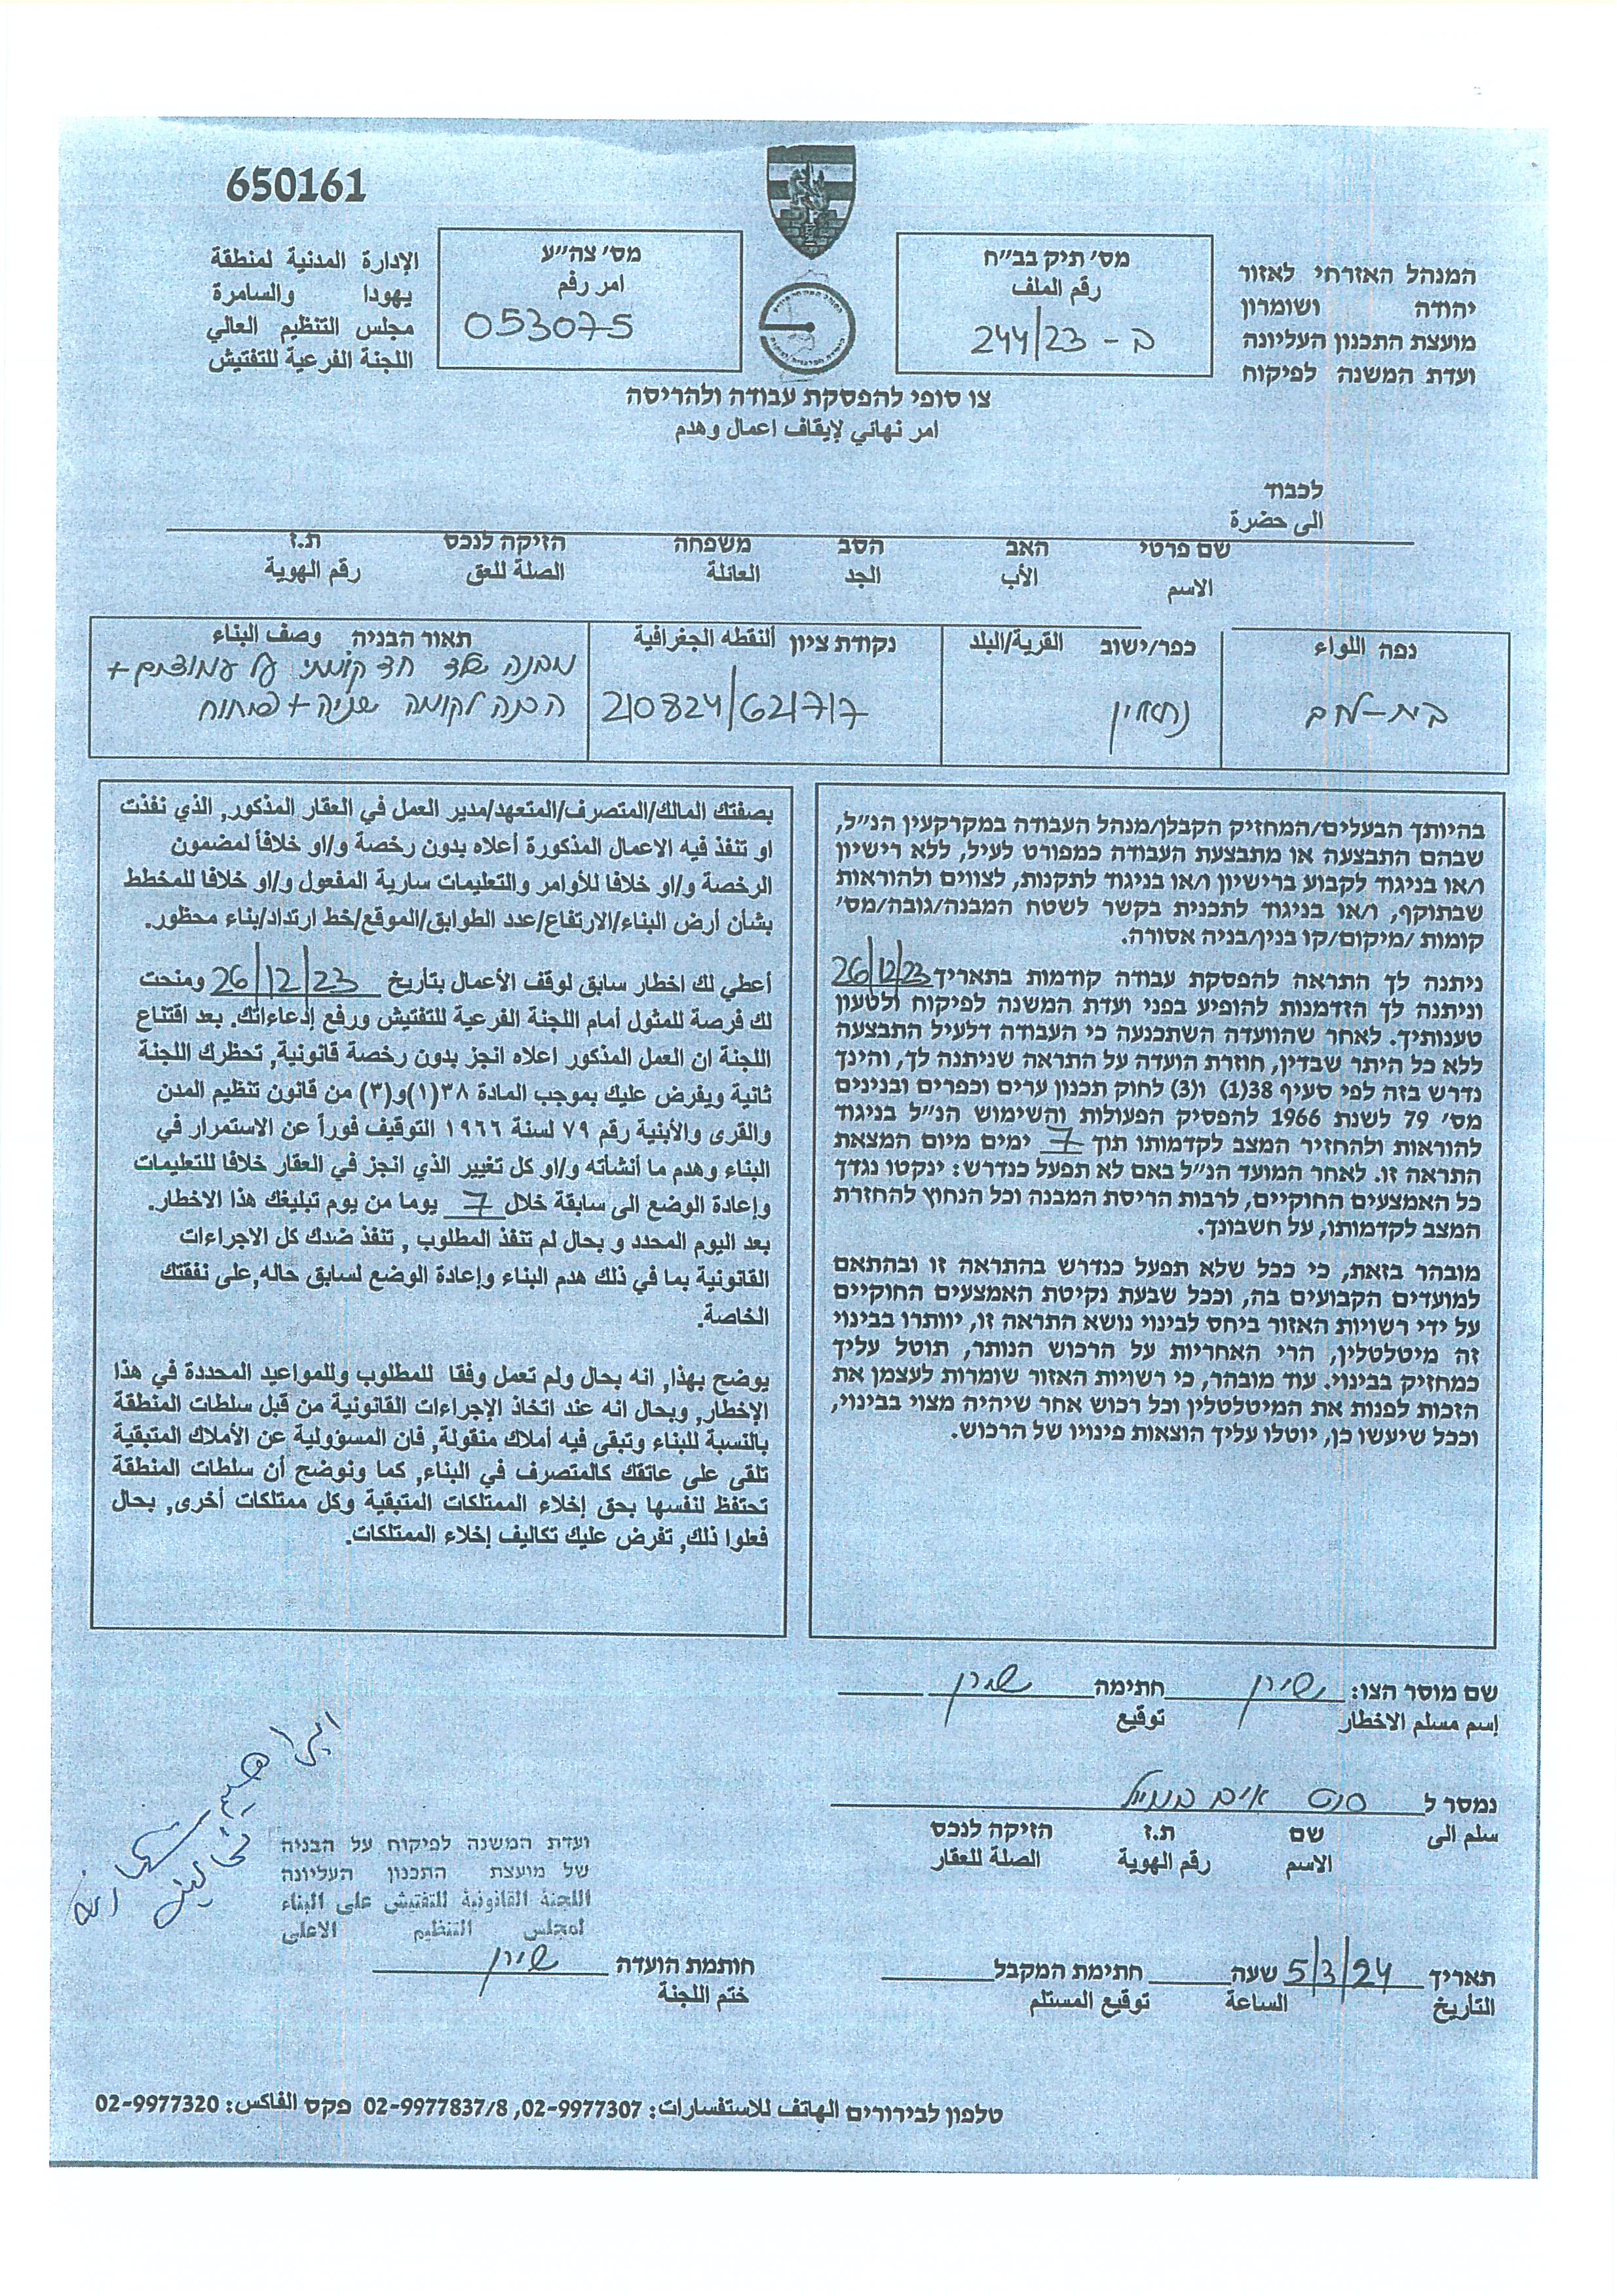 650161
המנהל האזרחי לאזור
יהודה ושומרון
מועצת התכנון העליונה
ועדת המשנה לפיקוח
מס׳ תיק בב״ח
رقم الملف
ב - 244/23
מס׳ צה״ע
امر رقم
053075
الإدارة المدنية لمنطقة
يهودا والسامرة
مجلس التنظيم العالي
اللجنة الفرعية للتفتيش
צו סופי להפסקת עבודה ולהריסה
امر نهائي لإيقاف اعمال وهدم
לכבוד
الى حضرة
שם פרטי האב הסב משפחה הזיקה לנכס ת.ז
الاسم الأب الجد العائلة الصلة للعق رقم الهوية
נפה اللواء
בית-לחם
כפר/ישוב القرية/البلد
נחאלין
נקודת ציון النقطه الجغرافية
210824/621717
תאור הבניה وصف البناء
מבנה שלד חד קומתי על עמודים +
הכנה לקומה שניה + פתוח
בהיותך הבעלים/המחזיק הקבלן/מנהל העבודה במקרקעין הנ״ל,
שבהם התבצעה או מתבצעת העבודה כמפורט לעיל, ללא רישיון
ו/או בניגוד לקבוע ברישיון ו/או בניגוד לתקנות, לצווים ולהוראות
שבתוקף, ו/או בניגוד לתכנית בקשר לשטח המבנה/גובה/מס׳
קומות /מיקום/קו בנין/בניה אסורה.
ניתנה לך התראה להפסקת עבודה קודמות בתאריך 26/12/23
וניתנה לך הזדמנות להופיע בפני ועדת המשנה לפיקוח ולטעון
טענותיך. לאחר שהוועדה השתכנעה כי העבודה דלעיל התבצעה
ללא כל היתר שבדין, חוזרת הועדה על התראה שניתנה לך, והינך
נדרש בזה לפי סעיף 38(1) ו(3) לחוק תכנון ערים וכפרים ובנינים
מס׳ 79 לשנת 1966 להפסיק הפעולות והשימוש הנ״ל בניגוד
להוראות ולהחזיר המצב לקדמותו תוך 7 ימים מיום המצאת
התראה זו. לאחר המועד הנ״ל באם לא תפעל כנדרש: ינקטו נגדך
כל האמצעים החוקיים, לרבות הריסת המבנה וכל הנחוץ להחזרת
המצב לקדמותו, על חשבונך.
מובהר בזאת, כי ככל שלא תפעל כנדרש בהתראה זו ובהתאם
למועדים הקבועים בה, וככל שבעת נקיטת האמצעים החוקיים
על ידי רשויות האזור ביחס לבינוי נושא התראה זו, יוותרו בבינוי
זה מיטלטלין, הרי האחריות על הרכוש הנותר, תוטל עליך
כמחזיק בבינוי. עוד מובהר, כי רשויות האזור שומרות לעצמן את
הזכות לפנות את המיטלטלין וכל רכוש אחר שיהיה מצוי בבינוי,
וככל שיעשו כן, יוטלו עליך הוצאות פינויו של הרכוש.
بصفتك المالك/المتصرف/المتعهد/مدير العمل في العقار المذكور, الذي نفذت
او تنفذ فيه الاعمال المذكورة أعلاه بدون رخصة و/او خلافاً لمضمون
الرخصة و/او خلافا للأوامر والتعليمات سارية المفعول و/او خلافا للمخطط
بشأن أرض البناء/الارتفاع/عدد الطوابق/الموقع/خط ارتداد/بناء محظور.
أعطي لك اخطار سابق لوقف الأعمال بتأريخ 26/12/23 ومنحت
لك فرصة للمثول أمام اللجنة الفرعية للتفتيش ورفع إدعاءاتك. بعد اقتناع
اللجنة ان العمل المذكور اعلاه انجز بدون رخصة قانونية, تحظرك اللجنة
ثانية ويفرض عليك بموجب المادة ٣٨(١)و(٣) من قانون تنظيم المدن
والقرى والأبنية رقم ٧٩ لسنة ١٩٦٦ التوقيف فوراً عن الاستمرار في
البناء وهدم ما أنشأته و/او كل تغيير الذي انجز في العقار خلافا للتعليمات
وإعادة الوضع الى سابقة خلال 7 يوما من يوم تبليغك هذا الاخطار.
بعد اليوم المحدد و بحال لم تنفذ المطلوب , تنفذ ضدك كل الاجراءات
القانونية بما في ذلك هدم البناء وإعادة الوضع لسابق حاله,على نفقتك
الخاصة.
يوضح بهذا, انه بحال ولم تعمل وفقا للمطلوب وللمواعيد المحددة في هذا
الإخطار, وبحال انه عند اتخاذ الإجراءات القانونية من قبل سلطات المنطقة
بالنسبة للبناء وتبقى فيه أملاك منقولة, فان المسؤولية عن الأملاك المتبقية
تلقى على عاتقك كالمتصرف في البناء, كما ونوضح أن سلطات المنطقة
تحتفظ لنفسها بحق إخلاء الممتلكات المتبقية وكل ممتلكات أخرى, بحال
فعلوا ذلك, تفرض عليك تكاليف إخلاء الممتلكات.
שם מוסר הצו: חתימה
إسم مسلم الاخطار توقيع
נמסר ל
سلم الى
שם ת.ז הזיקה לנכס
الاسم رقم الهوية الصلة للعقار
ועדת המשנה לפיקוח על הבניה
של מועצת התכנון העליונה
اللجنة القانونية للتفتيش على البناء
لمجلس التنظيم الاعلى
תאריך 5/3/24 שעה חתימת המקבל
التاريخ الساعة توقيع المستلم
חותמת הועדה
ختم اللجنة
טלפון לבירורים الهاتف للاستفسارات: 02-9977307, 02-9977837/8 פקס الفاكس: 02-9977320